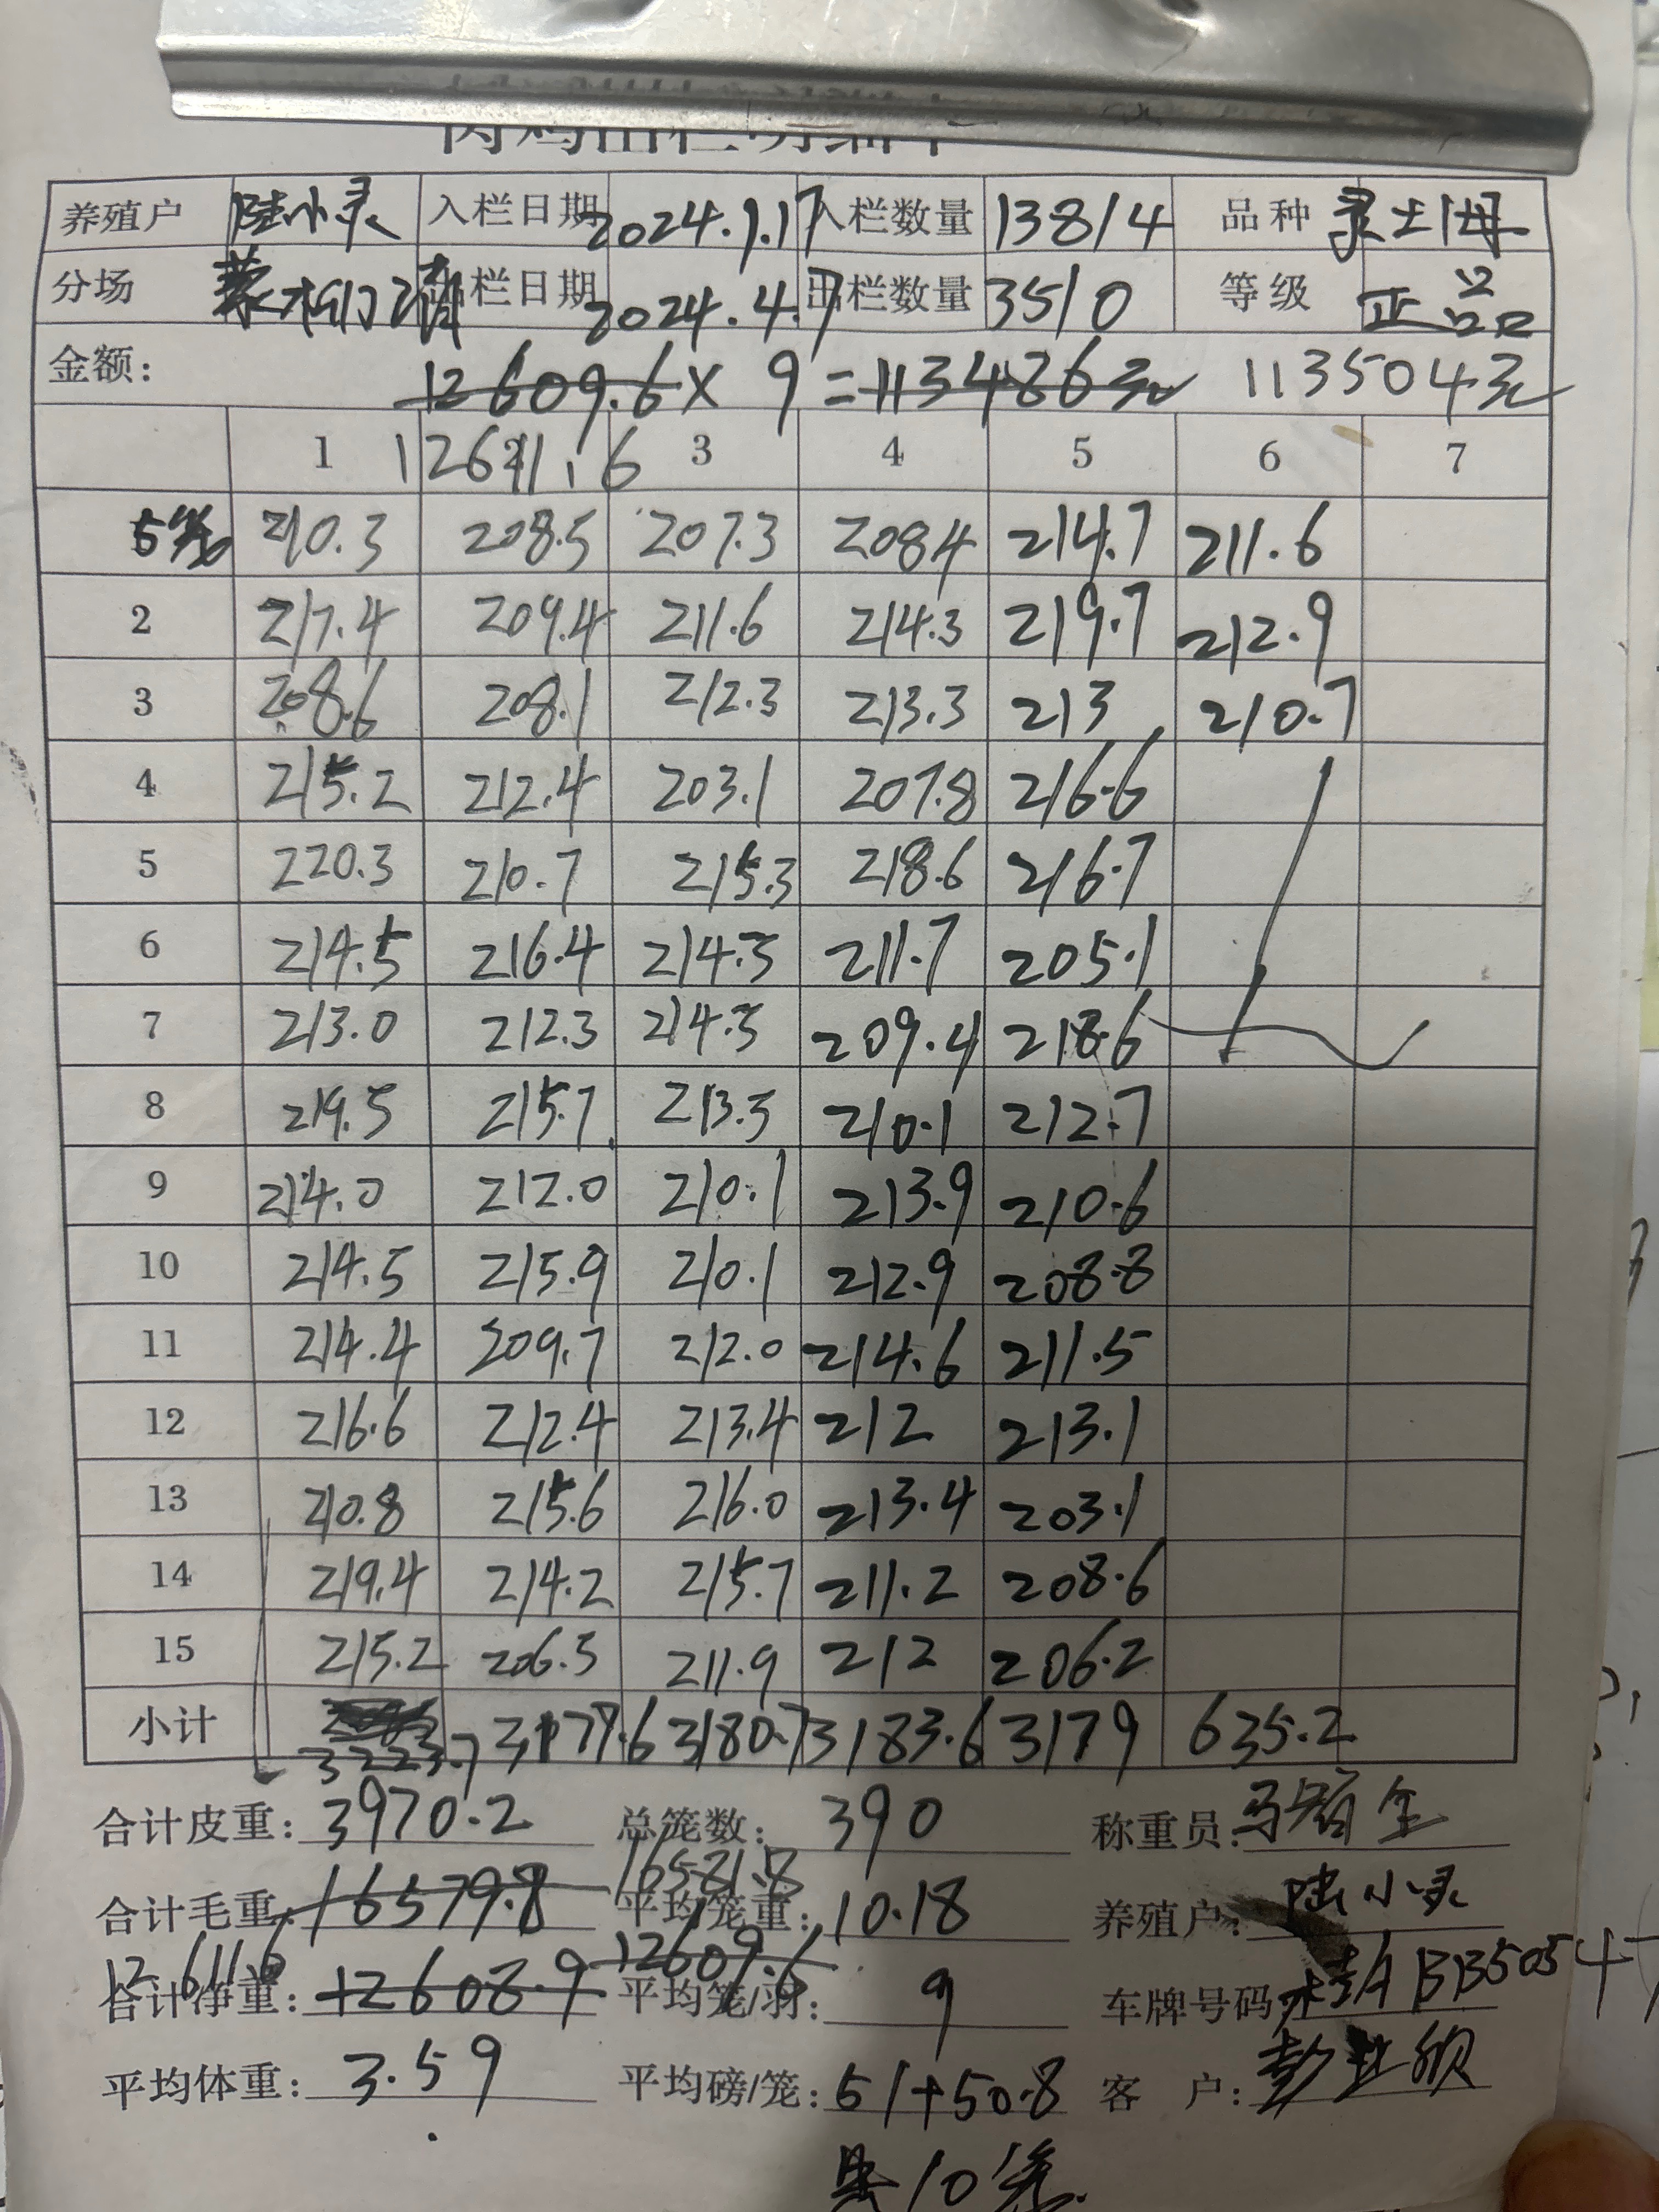 养殖户 陆小灵 入栏日期 2024.1.17 入栏数量 13814 品种 灵土1母
分场 出栏日期 2024.4.7 出栏数量 3510 等级 正品
金额: 12609.6 × 9 = 113486.3元 113504元
1 2 3 4 5 6 7
12611.6
5笼 210.3 208.5 207.3 208.4 214.7 211.6
2 217.4 209.4 211.6 214.3 219.7 212.9
3 208.6 208.1 212.3 213.3 213 210.7
4 215.2 212.4 203.1 207.8 216.6
5 220.3 210.7 215.3 218.6 216.7
6 214.5 216.4 214.3 211.7 205.1
7 213.0 212.3 214.3 209.4 218.6
8 219.5 215.7 213.3 210.1 212.7
9 214.0 212.0 210.1 213.9 210.6
10 214.5 215.9 210.1 212.9 208.8
11 214.4 209.7 212.0 214.6 211.5
12 216.6 212.4 213.4 212 213.1
13 210.8 215.6 216.0 213.4 203.1
14 219.4 214.2 215.7 211.2 208.6
15 215.2 206.3 211.9 212 206.2
小计 3223.7 3179.6 3180.7 3183.6 3179 635.2
合计皮重: 3970.2 总笼数: 390 称重员:
16581.8
合计毛重: 16579.8 平均笼重: 10.18 养殖户: 陆小灵
12611.6 12609.6
合计净重: 12608.9 平均笼/羽: 9 车牌号码
平均体重: 3.59 平均磅/笼: 51+50.8 客 户:
10笼